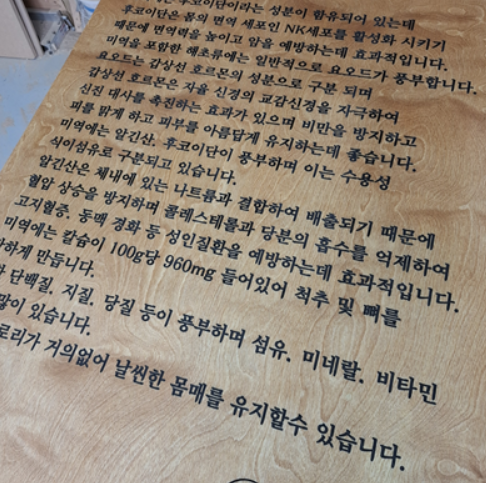 후코이단이라는 성분이 함유되어 있는데
후코이단은 몸의 면역 세포인 NK세포를 활성화 시키기
때문에 면역력을 높이고 암을 예방하는데 효과적입니다.
미역을 포함한 해초류에는 일반적으로 요오드가 풍부합니다.
요오드는 갑상선 호르몬의 성분으로 구분 되며
갑상선 호르몬은 자율 신경의 교감신경을 자극하여
신진 대사를 촉진하는 효과가 있으며 비만을 방지하고
피를 맑게 하고 피부를 아름답게 유지하는데 좋습니다.
미역에는 알긴산, 후코이단이 풍부하며 이는 수용성
식이섬유로 구분되고 있습니다.
알긴산은 체내에 있는 나트륨과 결합하여 배출되기 때문에
혈압 상승을 방지하며 콜레스테롤과 당분의 흡수를 억제하여
고지혈증, 동맥 경화 등 성인질환을 예방하는데 효과적입니다.
미역에는 칼슘이 100g당 960mg 들어있어 척추 및 뼈를
하게 만듭니다.
단백질, 지질, 당질 등이 풍부하며 섬유, 미네랄, 비타민
많이 있습니다.
로리가 거의없어 날씬한 몸매를 유지할수 있습니다.